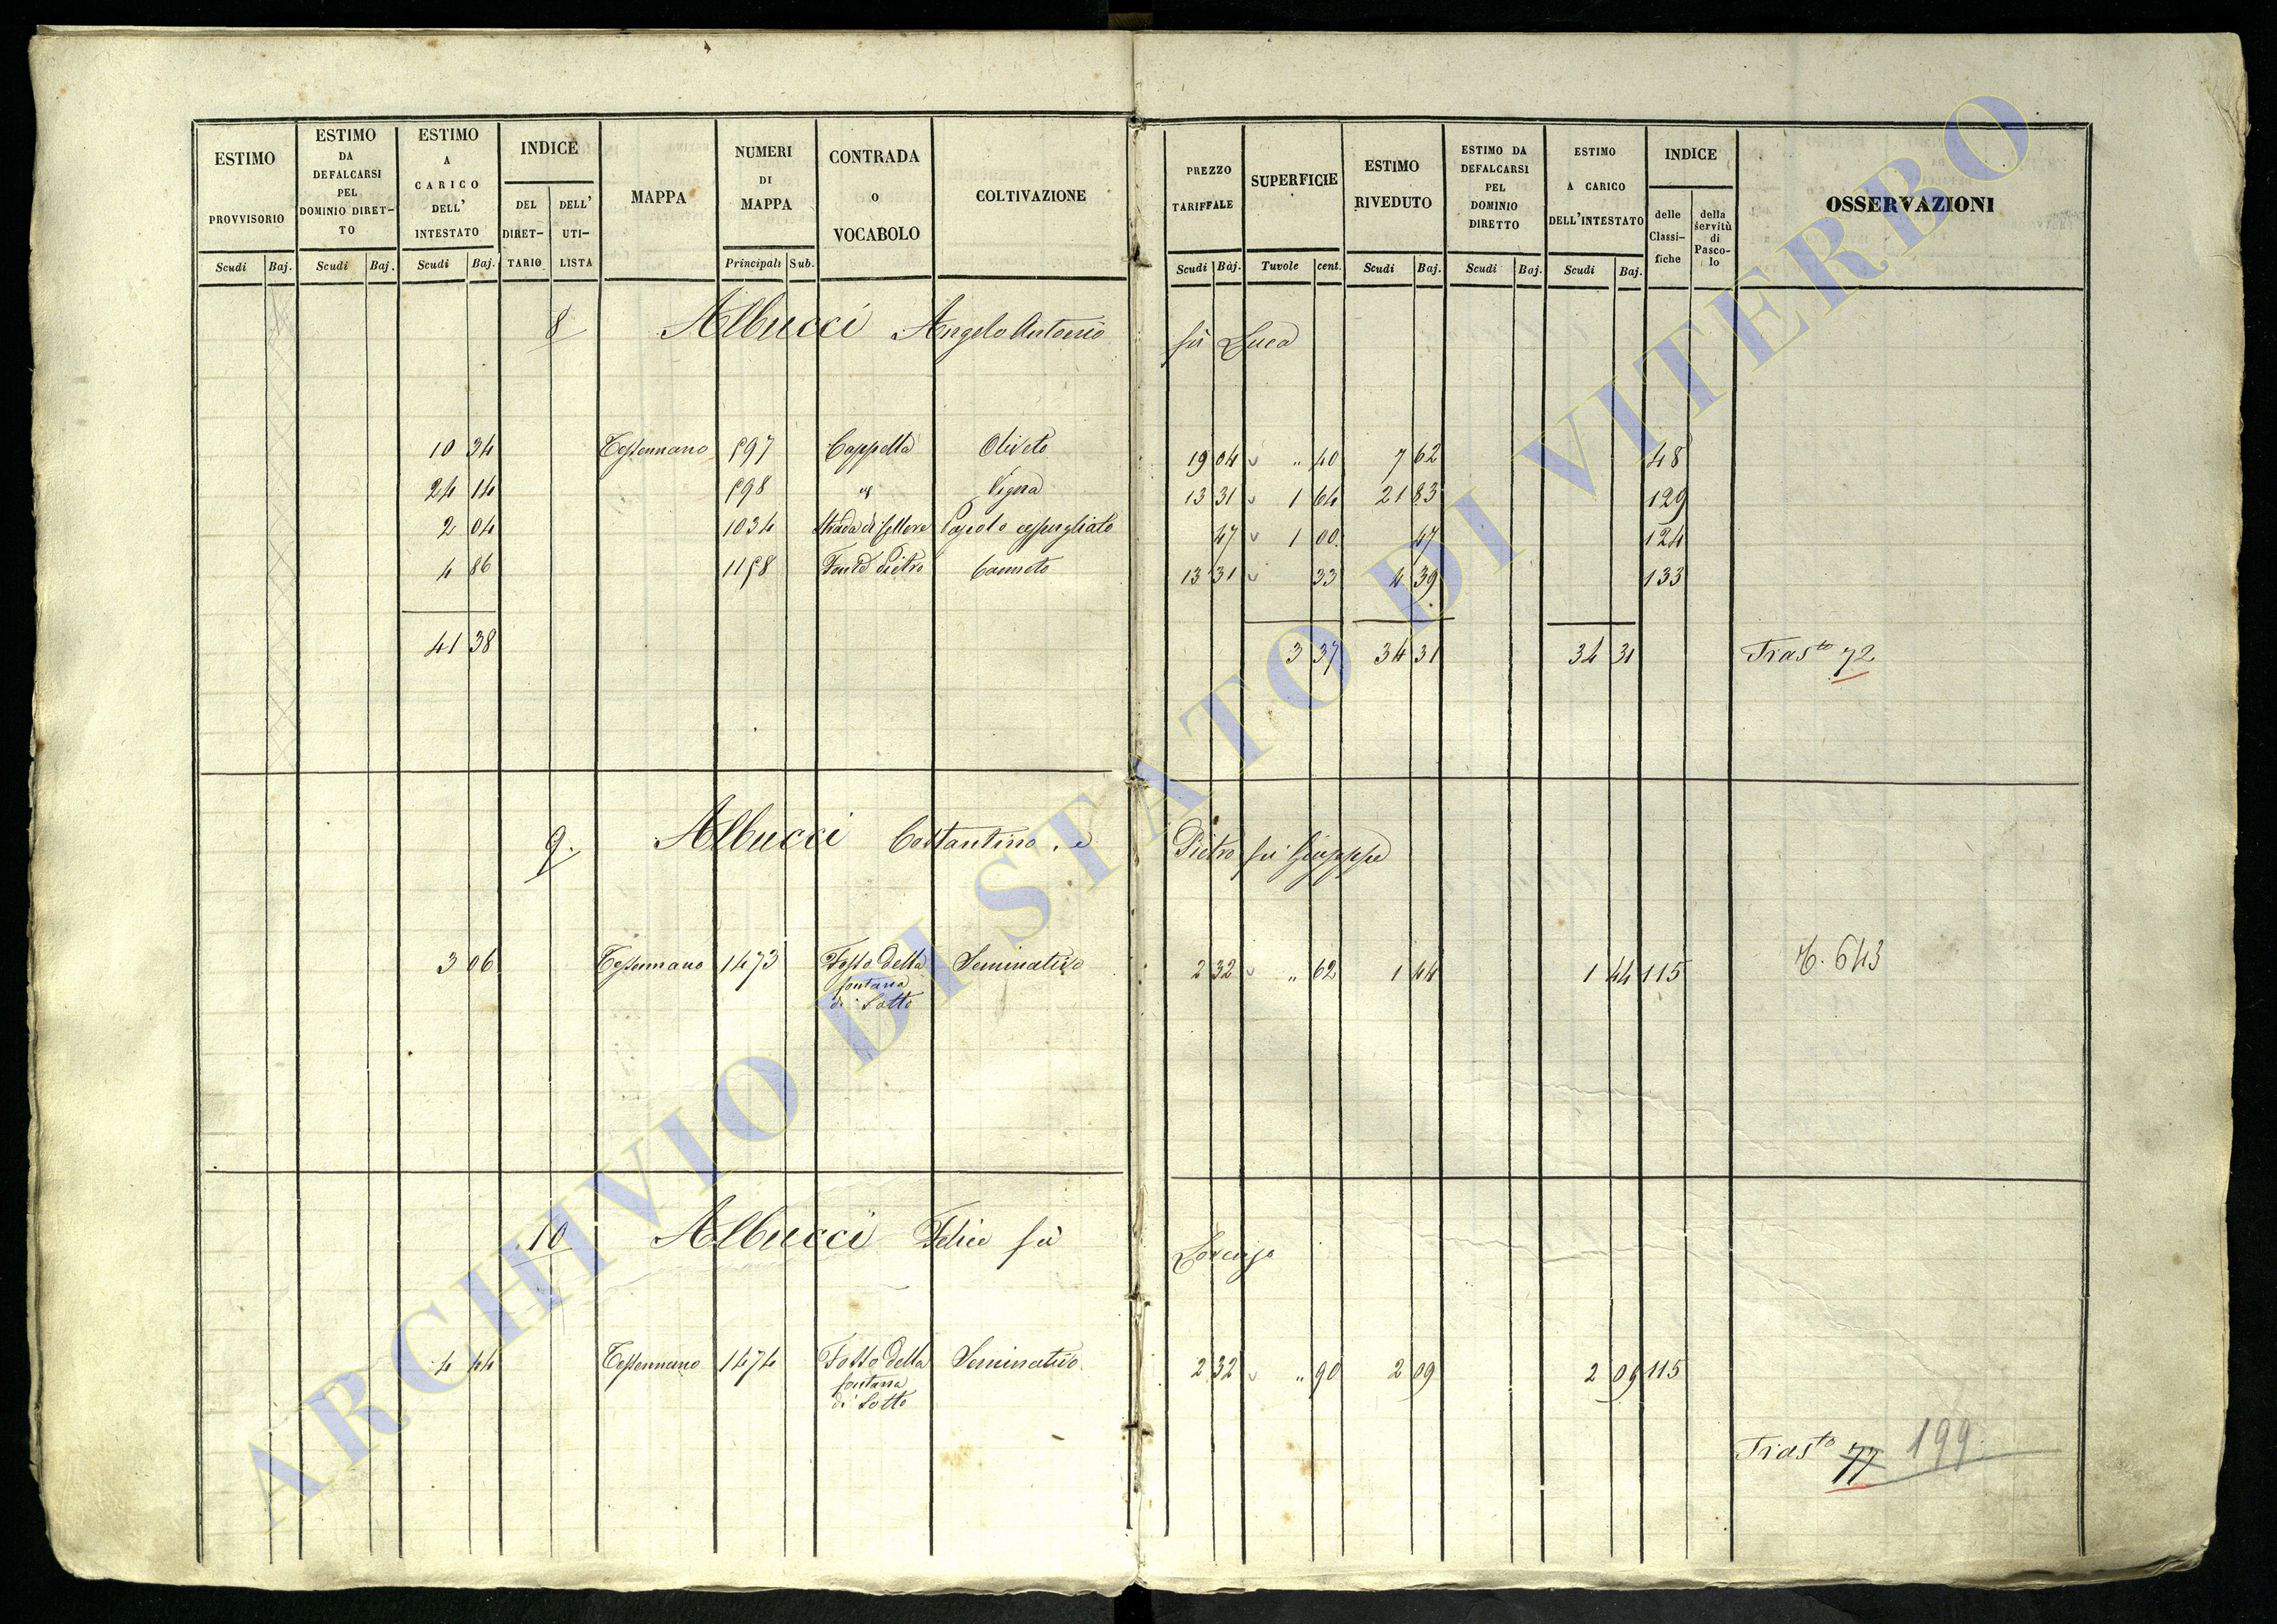 ESTIMO PROVVISORIO | ESTIMO DA DEFALCARSI PEL DOMINIO DIRET-TO | ESTIMO A CARICO DELL' INTESTATO | INDICE DEL DIRET-TARIO | DELL' UTI-LISTA | MAPPA | NUMERI DI MAPPA | CONTRADA o VOCABOLO | COLTIVAZIONE | PREZZO TARIFFALE | SUPERFICIE | ESTIMO RIVEDUTO | ESTIMO DA DEFALCARSI PEL DOMINIO DIRETTO | ESTIMO A CARICO DELL'INTESTATO | INDICE delle Classi-fiche | della servitù di Pasco-lo | OSSERVAZIONI
Scudi | Baj. | Scudi | Baj. | Scudi | Baj. | Principali | Sub. | Scudi | Baj. | Tavole | cent. | Scudi | Baj. | Scudi | Baj. | Scudi | Baj.
8 Albucci Angelo Antonio fù Luca
10 34 Tessennano 597 Cappella Oliveto 19 04 " 40 7 62 48
24 14 598 Vigna 13 31 1 64 21 83 129
2 04 1034 Strada di Pascolo cespugliato 47 1 00 47 124
4 86 1158 Canneto 13 31 33 4 39 133
41 38 3 37 34 31 34 31 Trasto 72
9. Albucci Costantino, e Pietro fù Giuseppe
3 06 Tessennano 1473 Fosso della Seminativo 2 32 " 62 1 44 1 44 115 643
fontana
di Sotto
10 Albucci Felice fù Lorenzo
4 44 Tessennano 1474 Fosso della Seminativo 2 32 " 90 2 09 2 09 115
fontana
di Sotto
Trasto 77 199.
ARCHIVIO DI STATO DI VITERBO